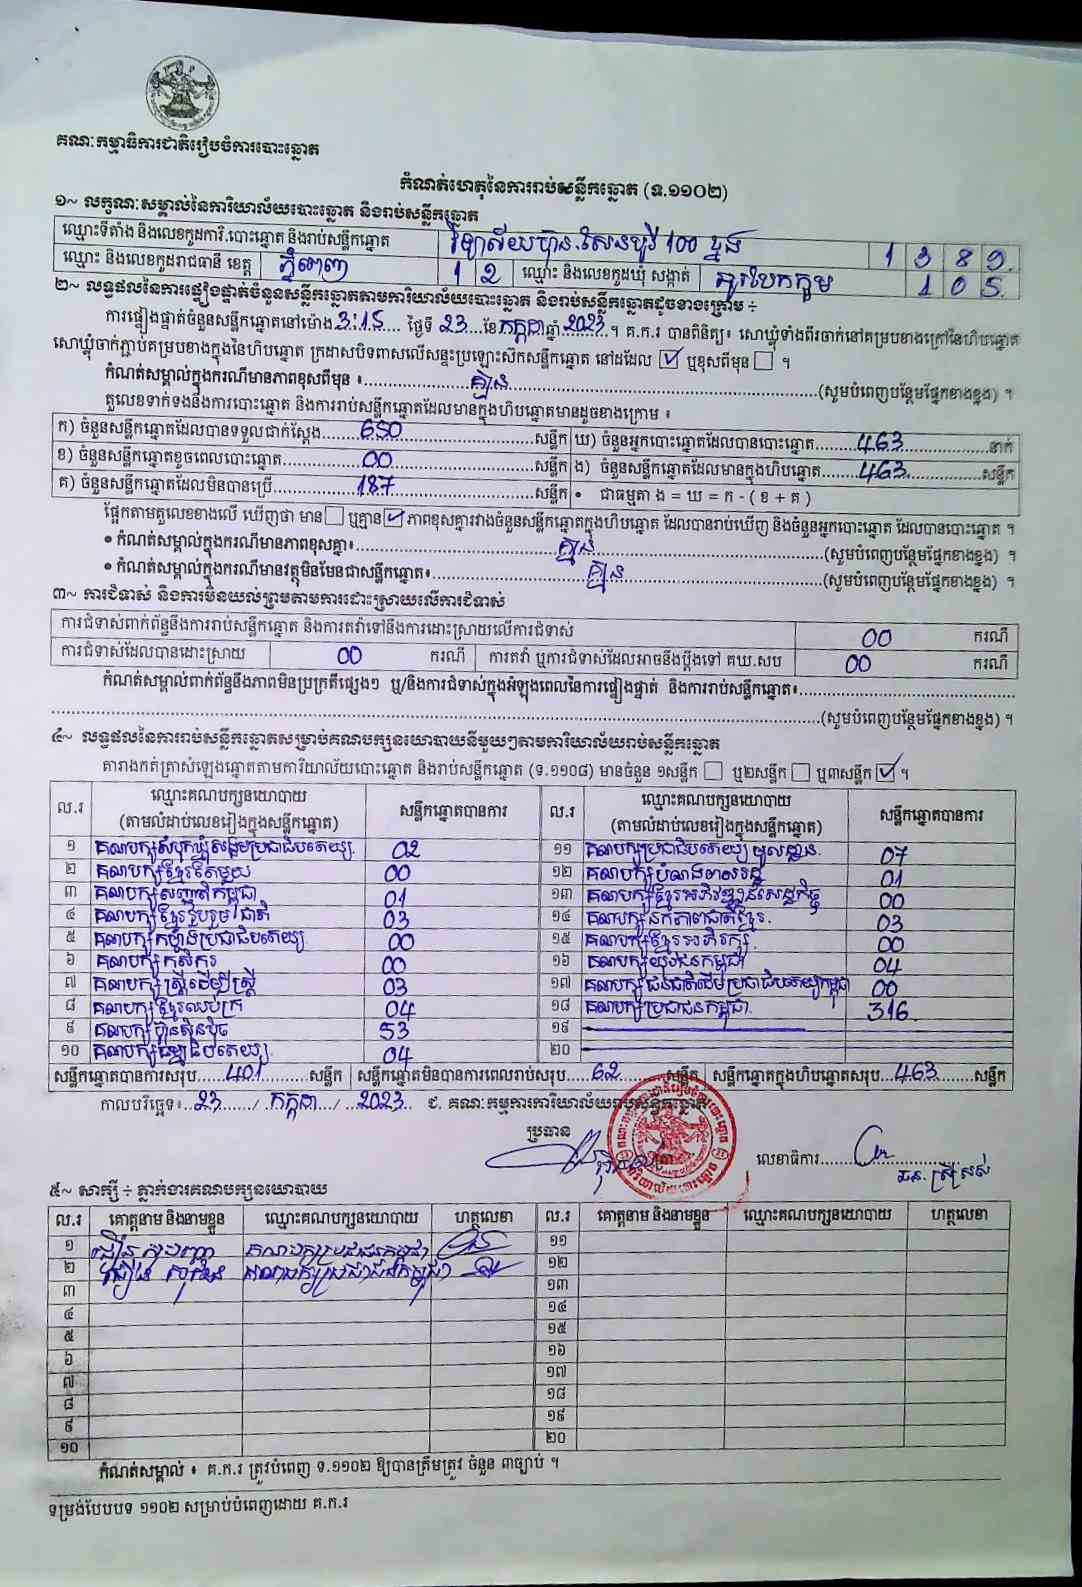 គណៈកម្មាធិការជាតិរៀបចំការបោះឆ្នោត
កំណត់ហេតុនៃការរាប់សន្លឹកឆ្នោត (ទ.១១០២)
១~ លក្ខណៈសម្គាល់នៃការិយាល័យបោះឆ្នោត និងរាប់សន្លឹកឆ្នោត
ឈ្មោះទីតាំង និងលេខកូដការិ.បោះឆ្នោត និងរាប់សន្លឹកឆ្នោត វិទ្យាល័យហ៊ុន.សែនបូរី 100 ខ្នង 1 3 8 9
ឈ្មោះ និងលេខកូដរាជធានី ខេត្ត ភ្នំពេញ 1 2 ឈ្មោះ និងលេខកូដឃុំ សង្កាត់ 1 0 5
២~ លទ្ធផលនៃការផ្ទៀងផ្ទាត់ចំនួនសន្លឹកឆ្នោតតាមការិយាល័យបោះឆ្នោត និងរាប់សន្លឹកឆ្នោតដូចខាងក្រោម ÷
ការផ្ទៀងផ្ទាត់ចំនួនសន្លឹកឆ្នោតនៅម៉ោង 3:15 ថ្ងៃទី 23 ខែ កក្កដា ឆ្នាំ 2023 ។ គ.ក.រ បានពិនិត្យ៖ សោឃ្លុំទាំងពីរចាក់នៅគម្របខាងក្រៅនៃហិបឆ្នោត
សោឃ្លុំចាក់ភ្ជាប់គម្របខាងក្នុងនៃហិបឆ្នោត ក្រដាសបិទពាសលើសន្ទះប្រឡោះស៊កសន្លឹកឆ្នោត នៅដដែល ☑ ឬខុសពីមុន ☐ ។
កំណត់សម្គាល់ក្នុងករណីមានភាពខុសពីមុន ៖ គ្មាន (សូមបំពេញបន្ថែមផ្នែកខាងខ្នង) ។
តួលេខទាក់ទងនឹងការបោះឆ្នោត និងការរាប់សន្លឹកឆ្នោតដែលមានក្នុងហិបឆ្នោតមានដូចខាងក្រោម ៖
ក) ចំនួនសន្លឹកឆ្នោតដែលបានទទួលជាក់ស្តែង 650 សន្លឹក ឃ) ចំនួនអ្នកបោះឆ្នោតដែលបានបោះឆ្នោត 463 នាក់
ខ) ចំនួនសន្លឹកឆ្នោតខូចពេលបោះឆ្នោត 00 សន្លឹក ង) ចំនួនសន្លឹកឆ្នោតដែលមានក្នុងហិបឆ្នោត 463 សន្លឹក
គ) ចំនួនសន្លឹកឆ្នោតដែលមិនបានប្រើ 187 សន្លឹក • ជាធម្មតា ង = ឃ = ក - ( ខ + គ )
ផ្អែកតាមតួលេខខាងលើ ឃើញថា មាន ☐ ឬគ្មាន ☑ ភាពខុសគ្នារវាងចំនួនសន្លឹកឆ្នោតក្នុងហិបឆ្នោត ដែលបានរាប់ឃើញ និងចំនួនអ្នកបោះឆ្នោត ដែលបានបោះឆ្នោត ។
• កំណត់សម្គាល់ក្នុងករណីមានភាពខុសគ្នា៖ គ្មាន (សូមបំពេញបន្ថែមផ្នែកខាងខ្នង) ។
• កំណត់សម្គាល់ក្នុងករណីមានវត្ថុមិនមែនជាសន្លឹកឆ្នោត៖ គ្មាន (សូមបំពេញបន្ថែមផ្នែកខាងខ្នង) ។
៣~ ការជំទាស់ និងការមិនយល់ព្រមតាមការដោះស្រាយលើការជំទាស់
ការជំទាស់ពាក់ព័ន្ធនឹងការរាប់សន្លឹកឆ្នោត និងការតវ៉ាទៅនឹងការដោះស្រាយលើការជំទាស់ 00 ករណី
ការជំទាស់ដែលបានដោះស្រាយ 00 ករណី ការតវ៉ា ឬការជំទាស់ដែលអាចនឹងប្តឹងទៅ គឃ.សប 00 ករណី
កំណត់សម្គាល់ពាក់ព័ន្ធនឹងភាពមិនប្រក្រតីផ្សេងៗ ឬ/និងការជំទាស់ក្នុងអំឡុងពេលនៃការផ្ទៀងផ្ទាត់ និងការរាប់សន្លឹកឆ្នោត៖
(សូមបំពេញបន្ថែមផ្នែកខាងខ្នង) ។
៤~ លទ្ធផលនៃការរាប់សន្លឹកឆ្នោតសម្រាប់គណបក្សនយោបាយនីមួយៗតាមការិយាល័យរាប់សន្លឹកឆ្នោត
តារាងកត់ត្រាសំឡេងឆ្នោតតាមការិយាល័យបោះឆ្នោត និងរាប់សន្លឹកឆ្នោត (ទ.១១០៨) មានចំនួន ១សន្លឹក ☐ ឬ២សន្លឹក ☐ ឬ៣សន្លឹក ☑ ។
ល.រ ឈ្មោះគណបក្សនយោបាយ (តាមលំដាប់លេខរៀងក្នុងសន្លឹកឆ្នោត) សន្លឹកឆ្នោតបានការ ល.រ ឈ្មោះគណបក្សនយោបាយ (តាមលំដាប់លេខរៀងក្នុងសន្លឹកឆ្នោត) សន្លឹកឆ្នោតបានការ
១ គណបក្សសំបុកឃ្មុំសង្គមប្រជាធិបតេយ្យ 02 ១១ គណបក្សប្រជាធិបតេយ្យមូលដ្ឋាន 07
២ គណបក្សខ្មែរតែមួយ 00 ១២ គណបក្សបំណងពលរដ្ឋ 01
៣ គណបក្សសញ្ជាតិកម្ពុជា 01 ១៣ គណបក្សខ្មែរអភិវឌ្ឍន៍សេដ្ឋកិច្ច 00
៤ គណបក្សខ្មែររួបរួមជាតិ 03 ១៤ គណបក្សឯកភាពជាតិខ្មែរ 03
៥ គណបក្សកម្លាំងប្រជាធិបតេយ្យ 00 ១៥ គណបក្សខ្មែរអភិរក្ស 00
៦ គណបក្សកសិករ 00 ១៦ គណបក្សយុវជនកម្ពុជា 04
៧ គណបក្សស្ត្រីដើម្បីស្ត្រី 03 ១៧ គណបក្សជនជាតិដើមប្រជាធិបតេយ្យកម្ពុជា 00
៨ គណបក្សខ្មែរឈប់ក្រ 04 ១៨ គណបក្សប្រជាជនកម្ពុជា 316
៩ គណបក្សហ៊្វុនស៊ិនប៉ិច 53 ១៩
១០ គណបក្សធម្មាធិបតេយ្យ 04 ២០
សន្លឹកឆ្នោតបានការសរុប 401 សន្លឹក សន្លឹកឆ្នោតមិនបានការពេលរាប់សរុប 62 សន្លឹក សន្លឹកឆ្នោតក្នុងហិបឆ្នោតសរុប 463 សន្លឹក
កាលបរិច្ឆេទ៖ 23 / កក្កដា / 2023 ជ. គណៈកម្មការការិយាល័យរាប់សន្លឹកឆ្នោត
ប្រធាន
លេខាធិការ
៥~ សាក្សី ÷ ភ្នាក់ងារគណបក្សនយោបាយ
ល.រ គោត្តនាម និងនាមខ្លួន ឈ្មោះគណបក្សនយោបាយ ហត្ថលេខា ល.រ គោត្តនាម និងនាមខ្លួន ឈ្មោះគណបក្សនយោបាយ ហត្ថលេខា
១ គណបក្សប្រជាជនកម្ពុជា ១១
២ គណបក្សប្រជាជនកម្ពុជា ១២
៣ ១៣
៤ ១៤
៥ ១៥
៦ ១៦
៧ ១៧
៨ ១៨
៩ ១៩
១០ ២០
កំណត់សម្គាល់ ៖ គ.ក.រ ត្រូវបំពេញ ទ.១១០២ ឱ្យបានត្រឹមត្រូវ ចំនួន ៣ច្បាប់ ។
ទម្រង់បែបបទ ១១០២ សម្រាប់បំពេញដោយ គ.ក.រ